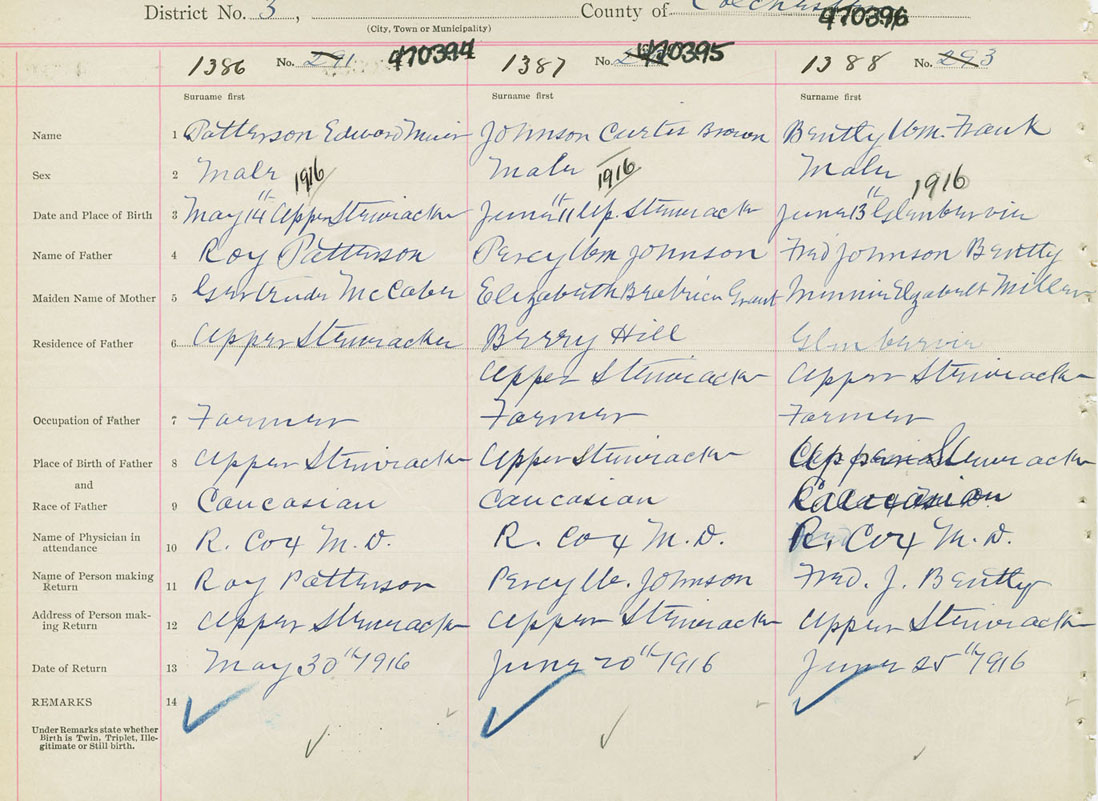 District No. 3, County of Colchester
(City, Town or Municipality) 470396
1386 No. 291 470394 1387 No. 470395 1388 No. 293
Surname first Surname first Surname first
Name 1 Patterson Edward Muir Johnson Curtis Brown Bently Wm. Frank
Sex 2 Male 1916 Male 1916 Male 1916
Date and Place of Birth 3 May 14th Upper Stewiacke June 11th Up. Stewiacke June 13th Glenbervie
Name of Father 4 Roy Patterson Percy Wm Johnson Fred Johnson Bently
Maiden Name of Mother 5 Gertrude McCabe Elizabeth Beatrice Grant Minnie Elizabeth Miller
Residence of Father 6 Upper Stewiacke Berry Hill Glenbervie
Upper Stewiacke Upper Stewiacke
Occupation of Father 7 Farmer Farmer Farmer
Place of Birth of Father 8 Upper Stewiacke Upper Stewiacke Upper Stewiacke
and
Race of Father 9 Caucasian Caucasian Caucasian
Name of Physician in
attendance 10 R. Cox M.D. R. Cox M.D. R. Cox M.D.
Name of Person making
Return 11 Roy Patterson Percy W. Johnson Fred. J. Bently
Address of Person mak-
ing Return 12 Upper Stewiacke Upper Stewiacke Upper Stewiacke
Date of Return 13 May 30th 1916 June 20th 1916 June 25th 1916
REMARKS 14
Under Remarks state whether
Birth is Twin, Triplet, Ille-
gitimate or Still birth.